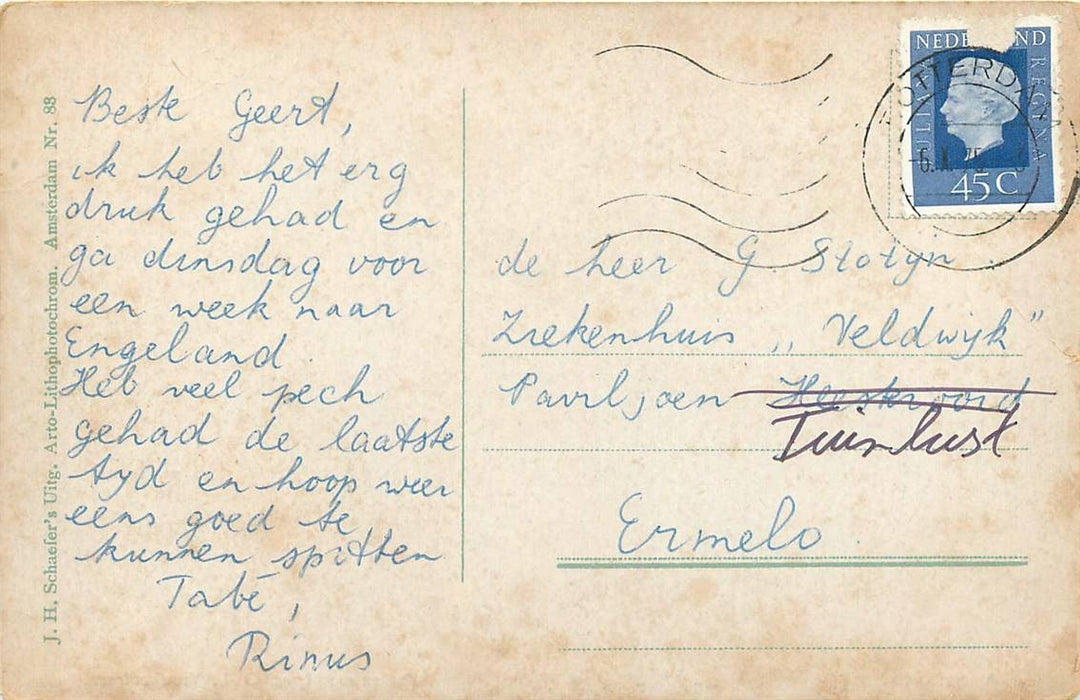 J. H. Schaefer's Uitg. Arto-Lithophotochrom. Amsterdam Nr. 83
Beste Geert,
ik heb het erg
druk gehad en
ga dinsdag voor
een week naar
Engeland.
Heb veel pech
gehad de laatste
tyd en hoop weer
eens goed te
kunnen spitten
Tabé,
Rinus
NEDE ND
JULI REGINA
45 C
ROTTERDAM
-6.X.75
de heer G Stotyn
Ziekenhuis „Veldwijk”
Paviljoen
Tuinlust
Ermelo.